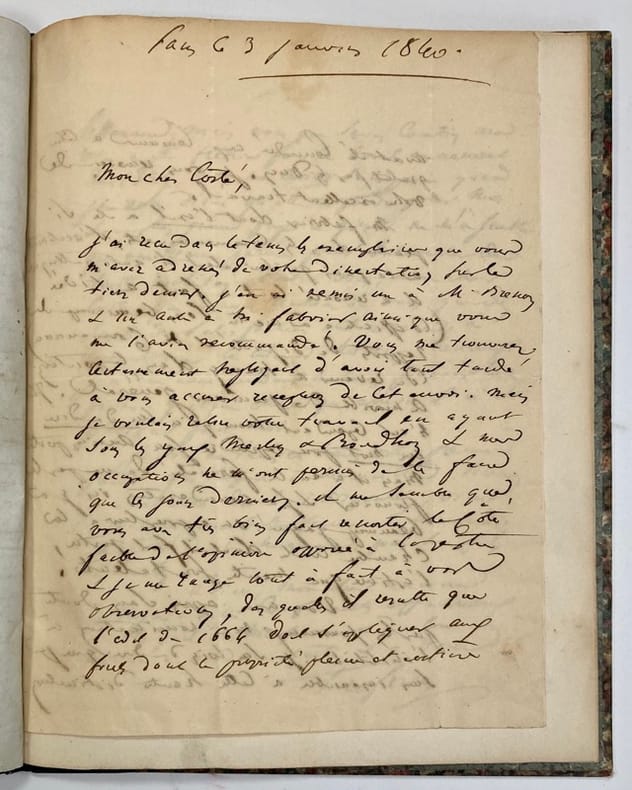 Paris le 3 janvier 1840.
Mon cher Coste,
J'ai reçu dans le tems les exemplaires que vous
m'avez adressés de votre dissertation sur le
tiers denier. J'en ai remis un à M.
& un autre à M. fabrier ainsi que vous
me l'aviez recommandé. Vous me trouverez
certainement négligent d'avoir tant tardé
à vous accuser reception de cet envoi. mais
je voulais relire votre travail en ayant
sous les yeux Meslin & Proudhon & mes
occupations ne m'ont permis de le faire
que les jours derniers. il me semble que
vous avez très bien fait ressortir le côté
faible de l'opinion opposée à la vôtre
& je me range tout à fait à vos
observations, des quelles il resulte que
l'edit de 1664 doit s'appliquer aux
dont la propriété pleine et entière